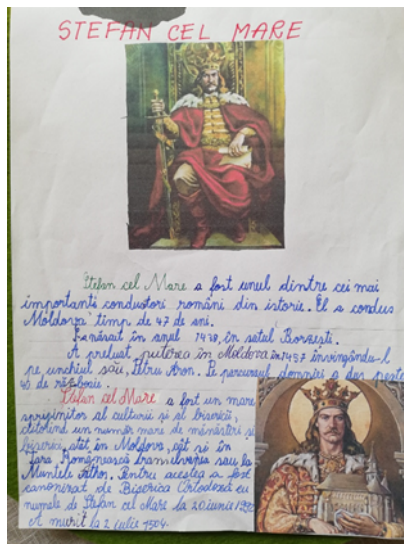 STEFAN CEL MARE
Ștefan cel Mare a fost unul dintre cei mai
importanți conducători români din istorie. El a condus
Moldova timp de 47 de ani.
S-a născut în anul 1438, în satul Borzești.
A preluat puterea în Moldova în 1457 învingându-l
pe unchiul său, Petru Aron. Pe parcursul domniei a dus peste
40 de războaie.
Ștefan cel Mare a fost un mare
sprijinitor al culturii și al bisericii,
ctitorind un număr mare de mănăstiri și
biserici, atât în Moldova, cât și în
Țara Românească, Transilvania sau la
Muntele Athos. Pentru acestea a fost
canonizat de Biserica Ortodoxă cu
numele de Ștefan cel Mare la 20 iunie 1992
A murit la 2 iulie 1504.